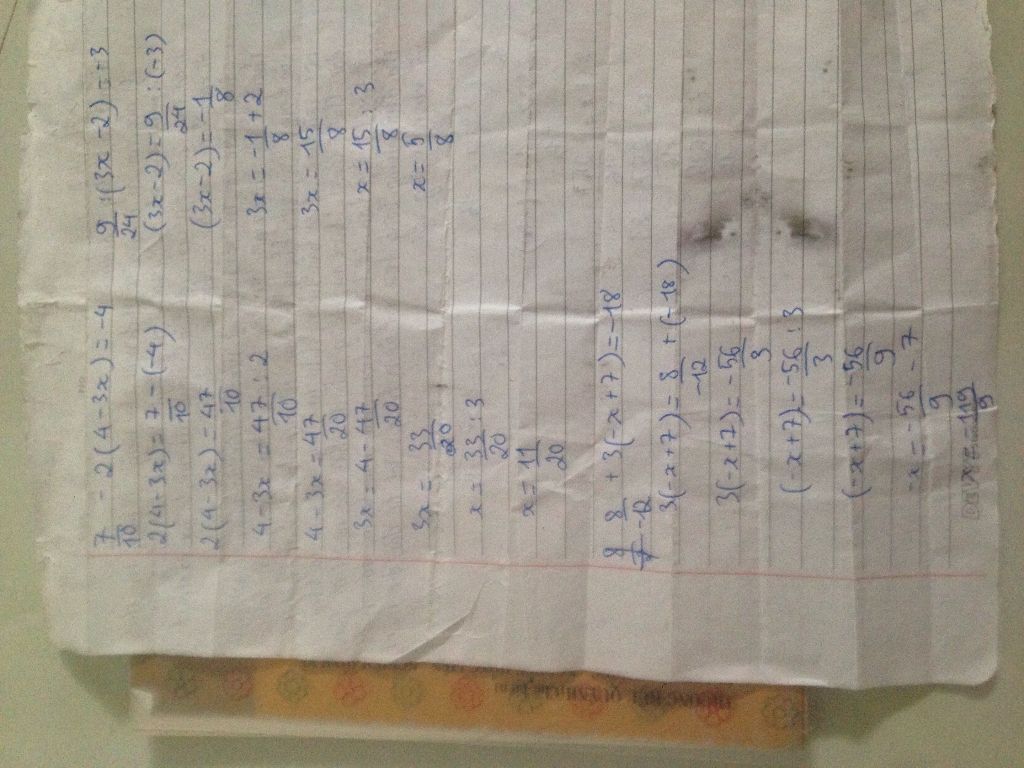 7/10 - 2(4-3x) = -4
2(4-3x) = 7/10 - (-4)
2(4-3x) = 47/10
4-3x = 47/10 : 2
4-3x = 47/20
3x = 4 - 47/20
3x = 33/20
x = 33/20 : 3
x = 11/20
9/24 : (3x-2) = -3
(3x-2) = 9/24 : (-3)
(3x-2) = -1/8
3x = -1/8 + 2
3x = 15/8
x = 15/8 : 3
x = 5/8
- 8/-12 + 3(-x+7) = -18
3(-x+7) = 8/-12 + (-18)
3(-x+7) = -56/3
(-x+7) = -56/3 : 3
(-x+7) = -56/9
-x = -56/9 - 7
x = 119/9